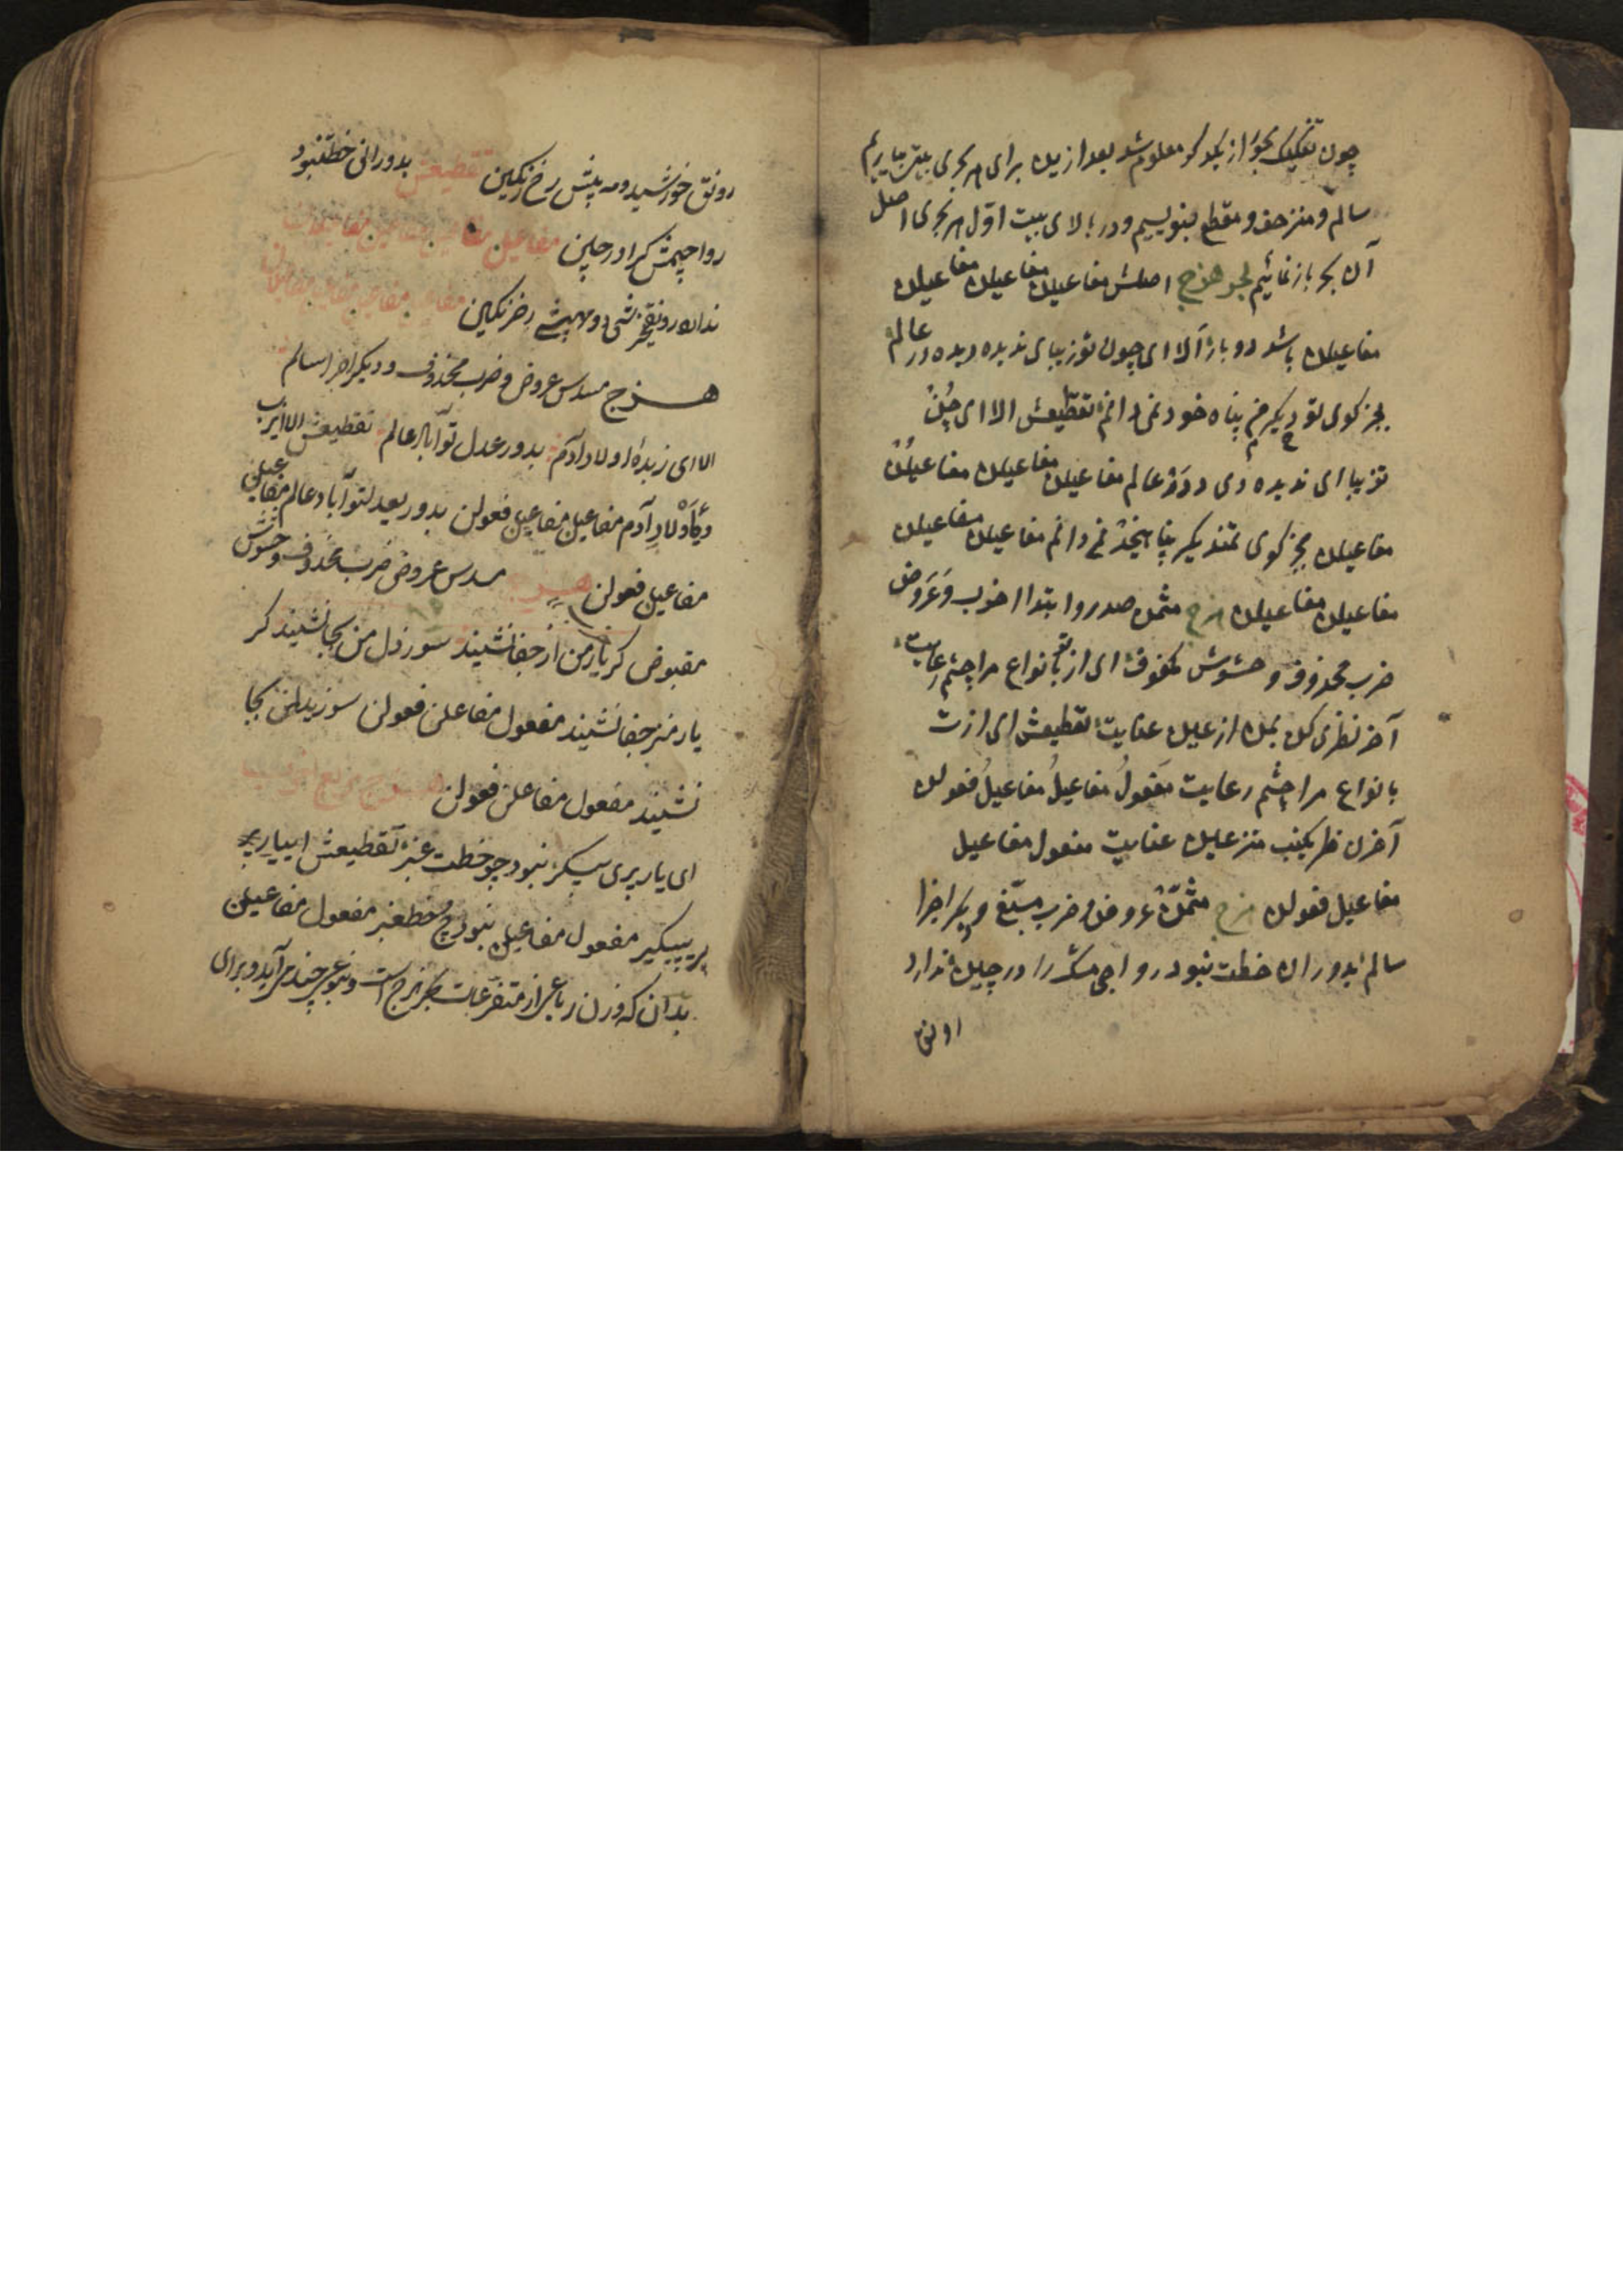 چون تفکیک بحور از یکدیگر معلوم شد بعد ازین برای هر بحری بیتی بیاریم
سالم و منزحف و مقطع بنویسیم و در بالای بیت اول هر بحری اصل
آن بحر باز نمائیم بحر هزج اصلش مفاعیلن مفاعیلن مفاعیلن
مفاعیلن باشد دو بار الا ای چون تو زیبای ندیده دیده در عالم
بجز کوی تو دیگر من پناه خود نمی دانم تقطیعش الا ای چُنْ
تزیبا ای ندیده دی ددر عالم مفاعیلن مفاعیلن مفاعیلن
مفاعیلن بجز کوی تمندیکر پناهیخد نمی دانم مفاعیلن مفاعیلن
مفاعیلن مفاعیلن هزج مثمن صدر و ابتدا اخرب و عروض
ضرب محذوف و حشوش مکفوف ای از تو بانواع مرا چشم رعایت
آخر نظری کن بمن از عین عنایت تقطیعش ای ازت
بانواع مرا چشم رعایت مفعولُ مفاعیلُ مفاعیلُ فعولن
آخرن ظریکنب منزعین عنایت مفعول مفاعیل
مفاعیل فعولن هزج مثمن عروض و ضرب مسبّغ و دیگر اجزا
سالم بدوران خطت نبود رواجی مشک را در چین ندارد
رونق
رونق خورشید و مه پیش رخ رنگین تقطیعش بدورانی خطتنبود
رواجیمش کرا در چین مفاعیلن مفاعیلن مفاعیلن مفاعیلان
ندارد رونقیخرشی دومهپیشی رخ رنکین مفاعیلن مفاعیلن مفاعیلن مفاعیلان
هزج مسدس عروض و ضرب محذوف و دیگر اجزا سالم
الا ای زبدهٔ اولاد آدم بدور عدل تو آباد عالم تقطیعش الا ایزب
دئاولاد آدم مفاعیلن مفاعیلن فعولن بدور یعدلتو آباد عالم مفاعیلن
مفاعیلن فعولن هزج مسدس عروض ضرب محذوف و حشوش
مقبوض کر یار من از جفا نشیند سوز دل من کجا نشیند کر
یار منز جفا نشیند مفعول مفاعلن فعولن سوزیدلمن کجا
نشیند مفعول مفاعلن فعولن هزج مربع اخرب
ای یار پری پیکر نبود چو خطت عنبر تقطیعش اییار پ
ریپیکیر مفعول مفاعیلن نبودچ خطعنبر مفعول مفاعیلن
بدان که وزن رباعی از متفرعات بحر هزج است و بنوعی چند می آید و برای